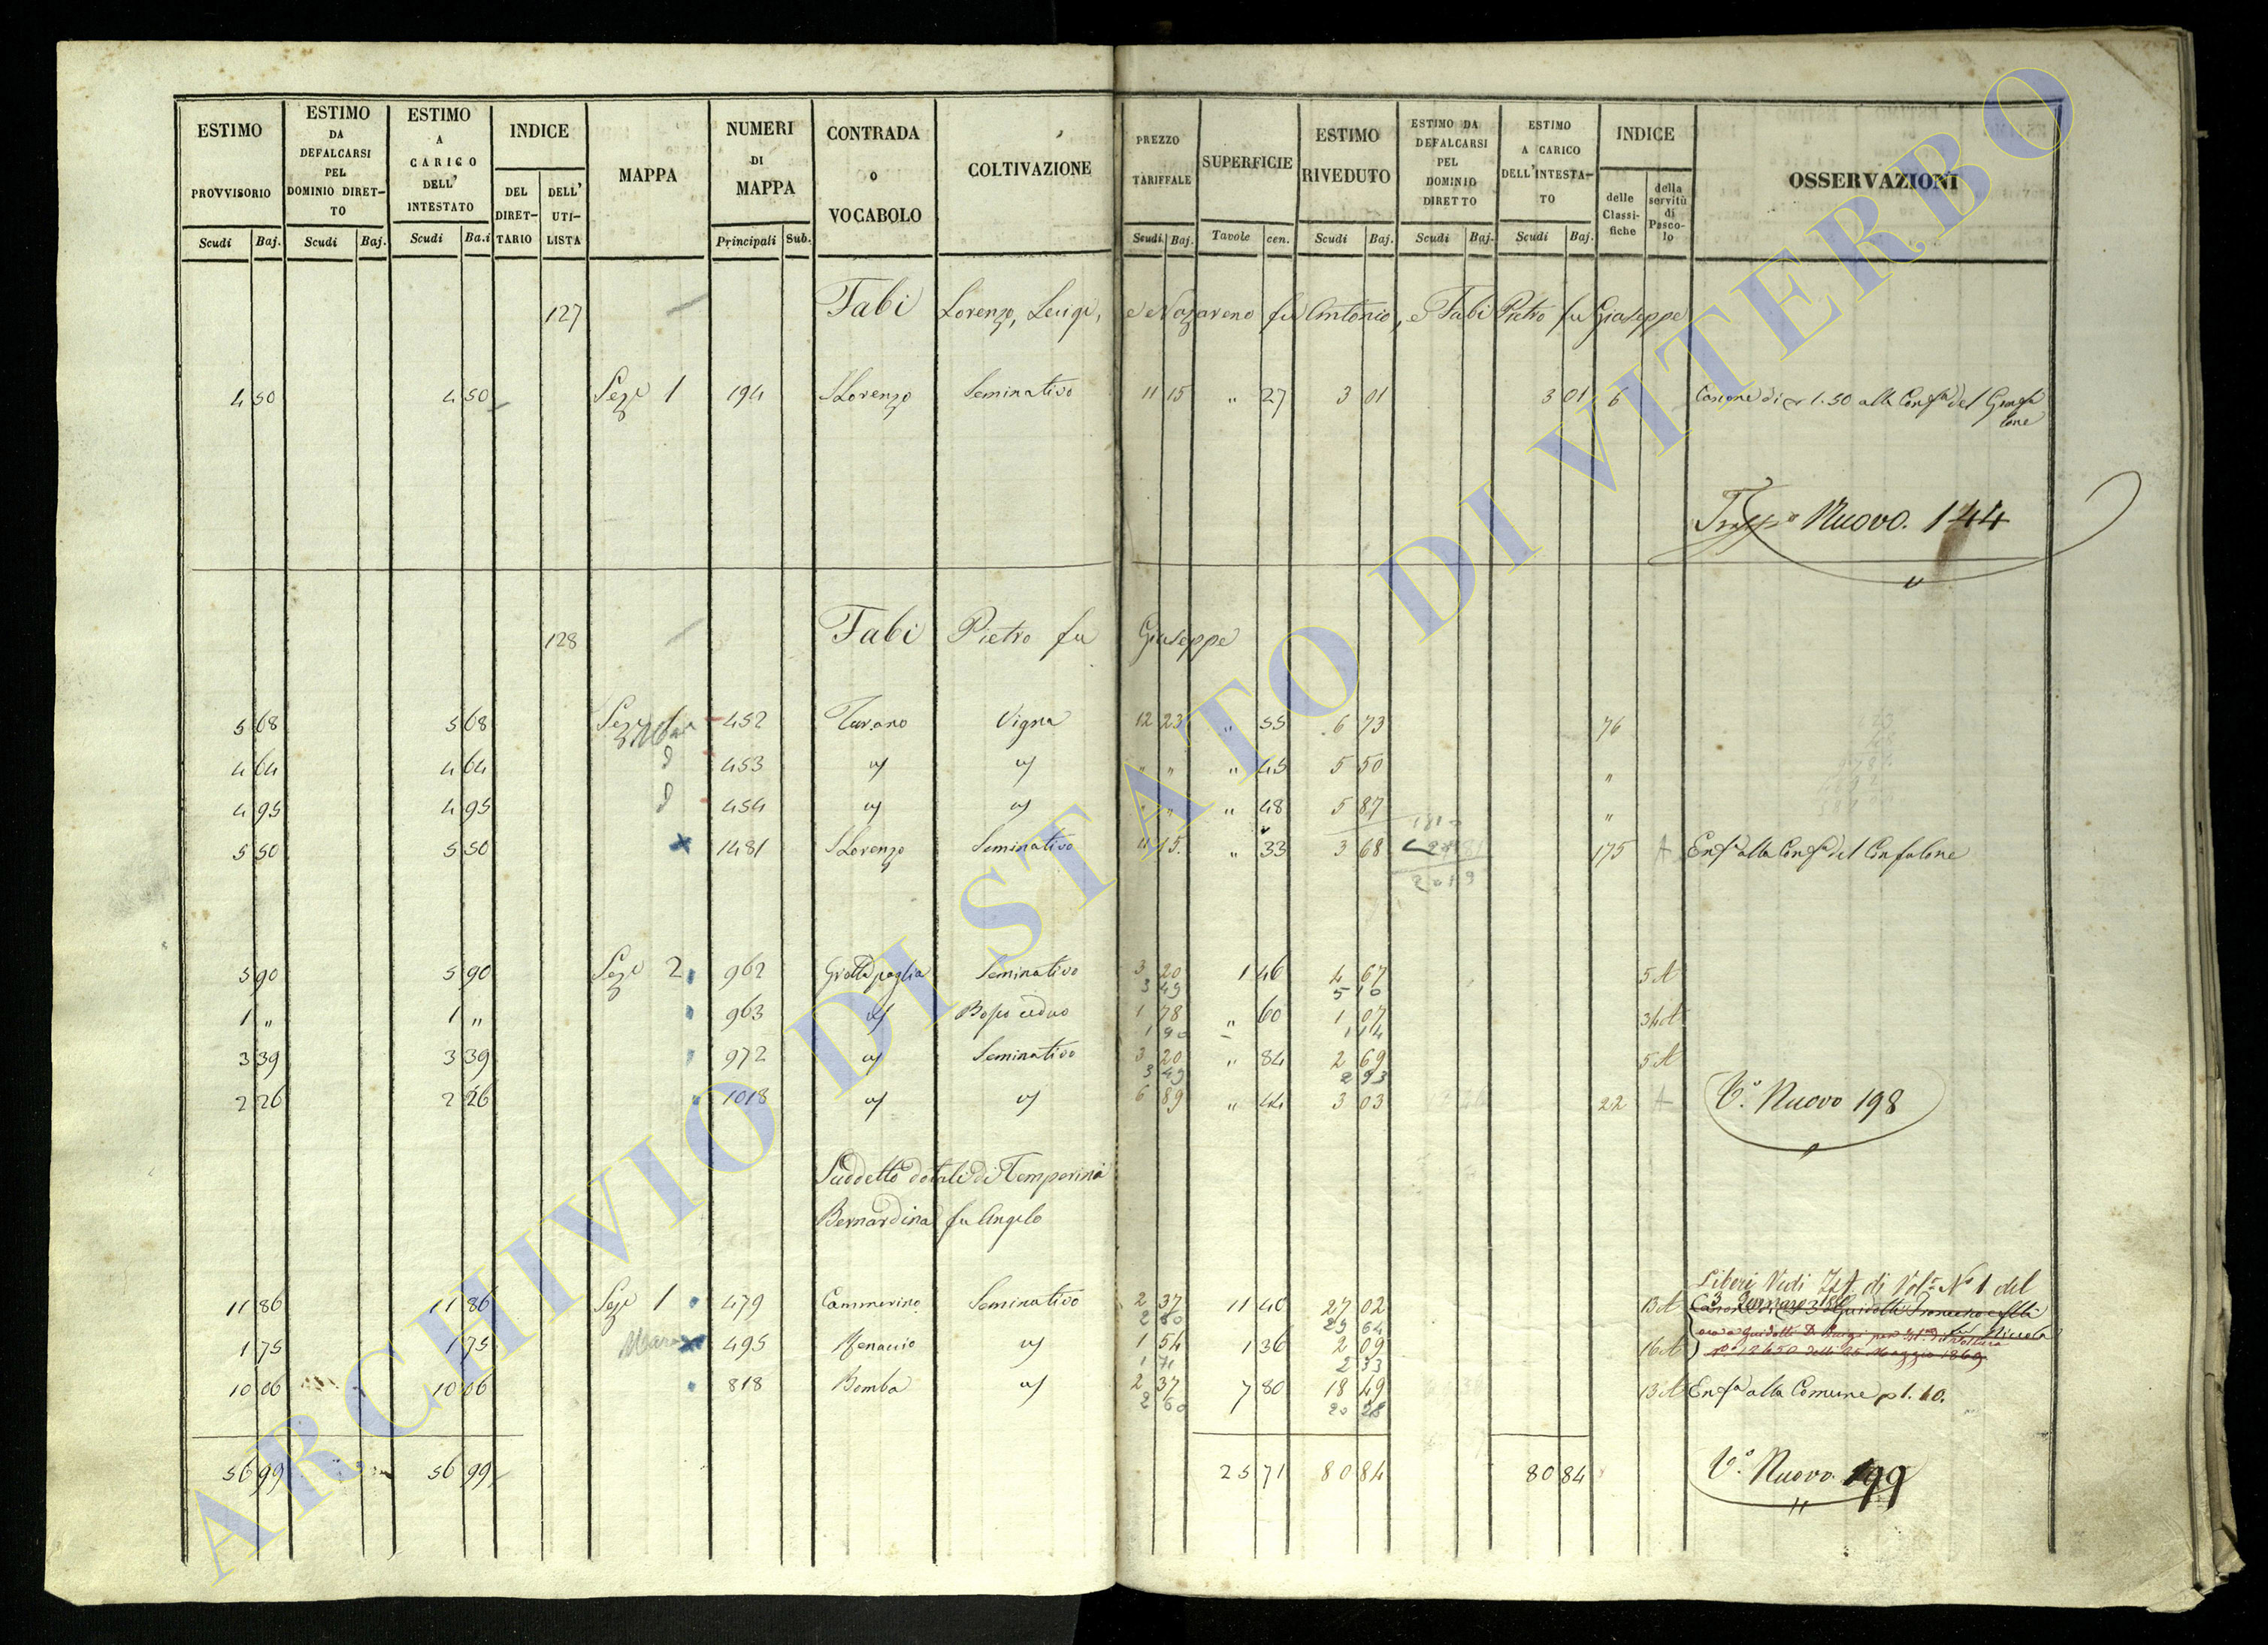 ESTIMO PROVVISORIO | ESTIMO DA DEFALCARSI PEL DOMINIO DIRET-TO | ESTIMO A CARICO DELL' INTESTATO | INDICE | MAPPA | NUMERI DI MAPPA | CONTRADA O VOCABOLO | COLTIVAZIONE | PREZZO TARIFFALE | SUPERFICIE | ESTIMO RIVEDUTO | ESTIMO DA DEFALCARSI PEL DOMINIO DIRETTO | ESTIMO A CARICO DELL'INTESTA-TO | INDICE | OSSERVAZIONI
DEL DIRET-TARIO | DELL' UTI-LISTA | delle Classi-fiche | della servitù di Pasco-lo
Scudi | Baj. | Scudi | Baj. | Scudi | Ba.i | Principali | Sub. | Scudi | Baj. | Tavole | cen. | Scudi | Baj. | Scudi | Baj. | Scudi | Baj.
127 Fabi Lorenzo, Luigi, e Nazareno fu Antonio, e Fabi Pietro fu Giuseppe
4 50 | 4 50 | Sez.e 1 | 194 | S Lorenzo | Seminativo | 11 15 | " 27 | 3 01 | 3 01 | 6 | Canone di 1.50 alla Conf.a del Gonfa
lone
Nuovo. 144
128 Fabi Pietro fu Giuseppe
5 68 | 5 68 | Sez.e 1 | 452 | Turano | Vigna | 12 23 | " 55 | 6 73 | 76
4 64 | 4 64 | 453 | " | " | " " | " 45 | 5 50 | "
4 95 | 4 95 | 454 | " | " | " " | " 48 | 5 87 | "
5 50 | 5 50 | 1481 | S Lorenzo | Seminativo | 11 15 | " 33 | 3 68 | 175 | A | Enf.a alla Conf.a del Confalone
5 90 | 5 90 | Sez.e 2 | 962 | Grotta paglia | Seminativo | 3 20 | 1 46 | 4 67 | 5 A
3 49 | 5 10
1 " | 1 " | 963 | " | Bosco ceduo | 1 78 | " 60 | 1 07 | 34 A
1 90 | 1 14
3 39 | 3 39 | 972 | " | Seminativo | 3 20 | " 84 | 2 69 | 5 A
3 49 | 2 93
2 26 | 2 26 | 1018 | " | " | 6 89 | " 44 | 3 03 | 22 | A | V.o Nuovo 198
Suddetto dotali di Temperina
Bernardina fu Angelo
Liberi Vedi Ist. di Vol.a N.o 1 del
11 86 | 11 86 | Sez.e 1 | 479 | Cammerino | Seminativo | 2 37 | 11 40 | 27 02 | 13 A
2 60 | 29 64
1 75 | 1 75 | 495 | Menaccio | " | 1 54 | 1 36 | 2 09 | 16 A
1 71 | 2 33
N.o 12650 delli 25 Maggio 1869
10 06 | 10 06 | 818 | Bomba | " | 2 37 | 7 80 | 18 49 | 13 A | Enf.a alla Comune p 1.10.
2 60 | 20 28
56 99 | 56 99 | 25 71 | 80 84 | 80 84 | V.o Nuovo 199
ARCHIVIO DI STATO DI VITERBO